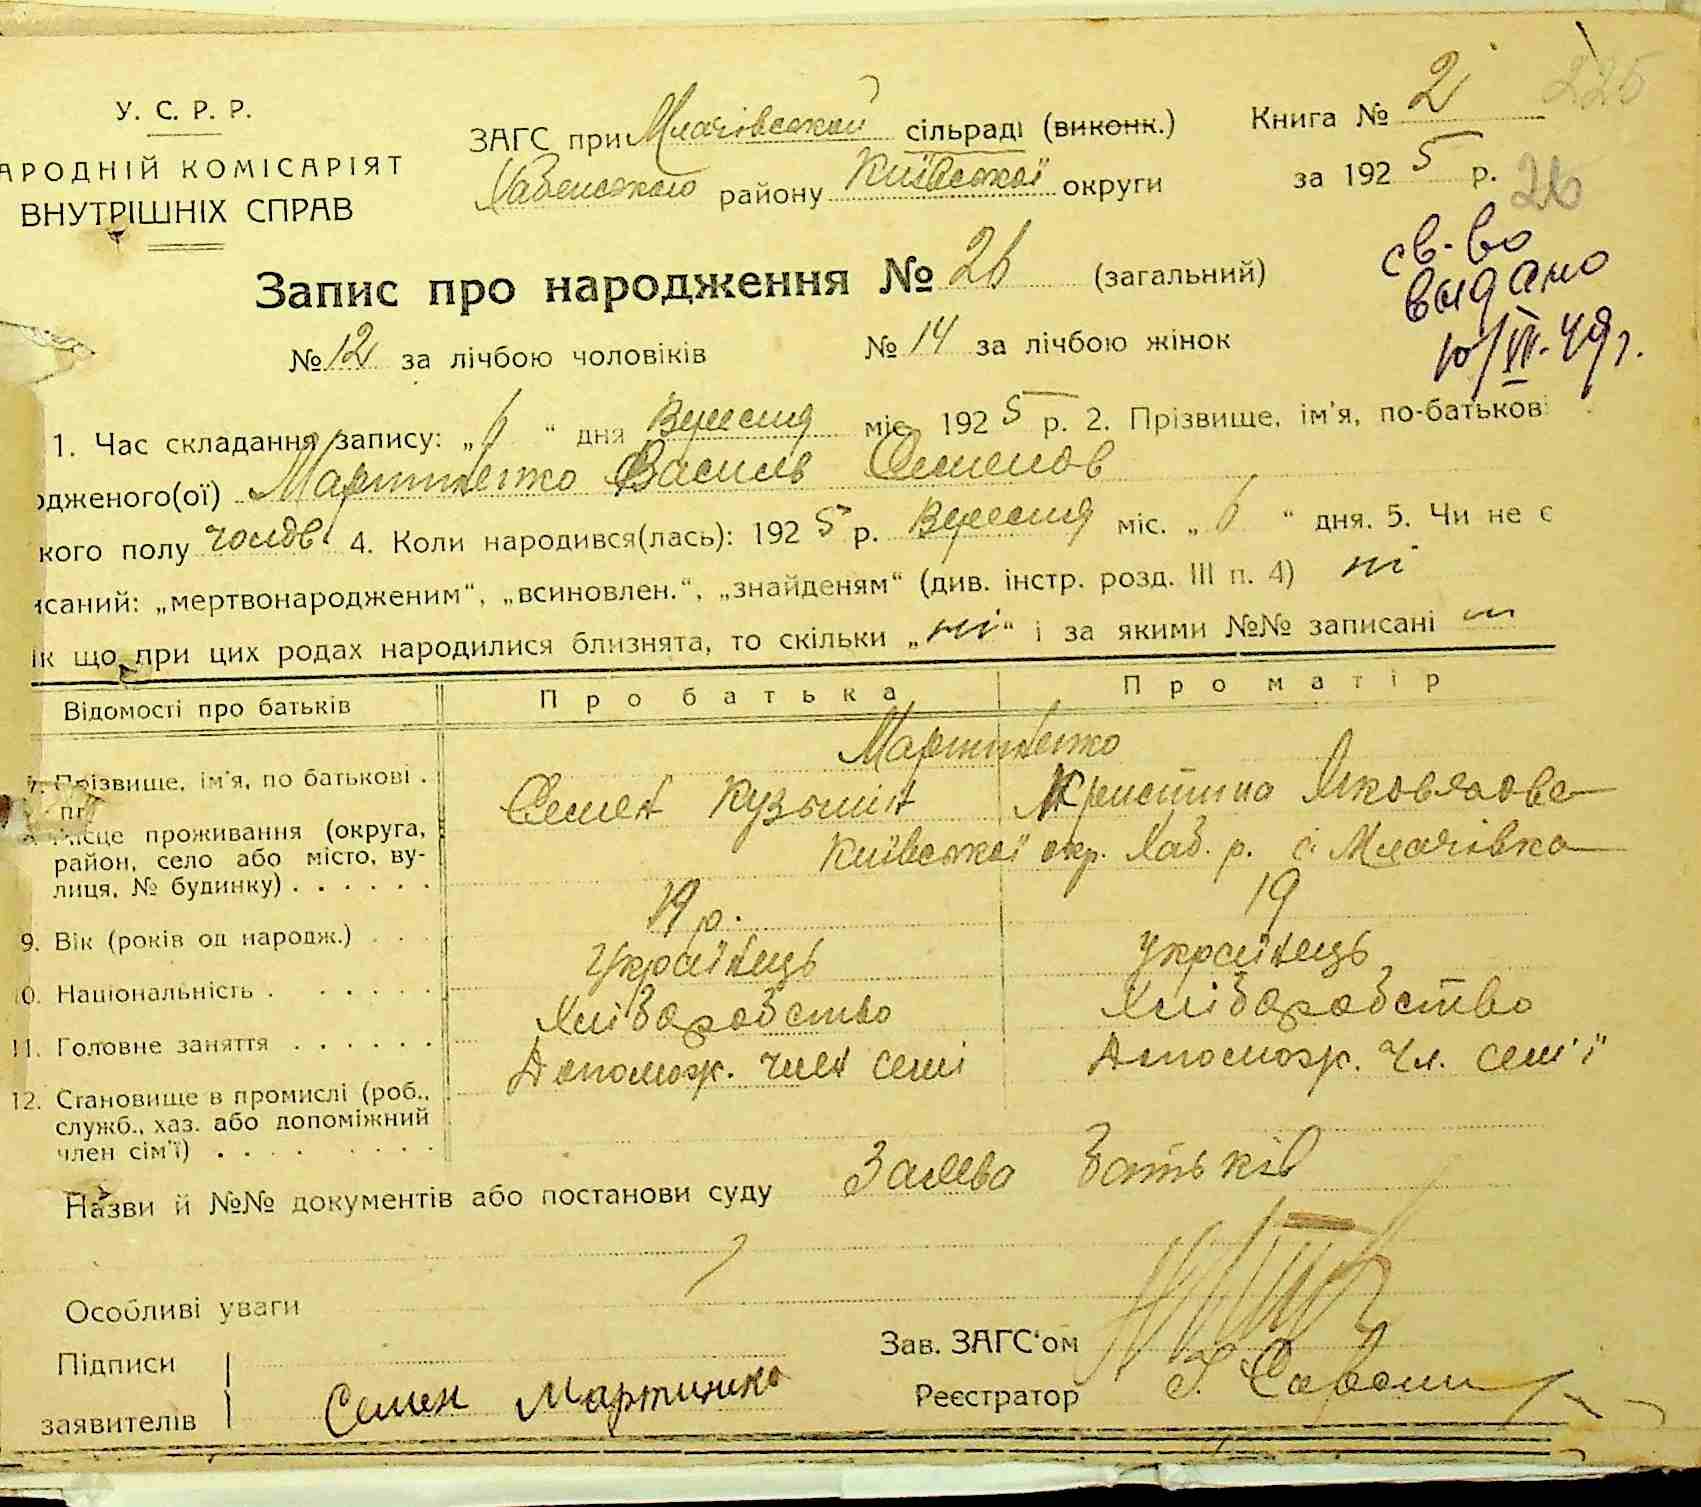 У. С. Р. Р.
АРОДНІЙ КОМІСАРІЯТ
ВНУТРІШНІХ СПРАВ
ЗАГС при Млачівській сільраді (виконк.)
Хабенського району Київської округи
Книга № 2
за 1925 р.
225
26
св-во
видано
10/VI-49 г.
Запис про народження № 26 (загальний)
№ 12 за лічбою чоловіків № 14 за лічбою жінок
1. Час складання запису: „6“ дня Вересня міс. 1925 р. 2. Прізвище, ім'я, по-батькові
одженого(ої) Мартиненко Василь Семенов
кого полу чолов. 4. Коли народився(лась): 1925 р. Вересня міс. „6“ дня. 5. Чи не є
исаний: „мертвонародженим“, „всиновлен.“, „знайденям“ (див. інстр. розд. III п. 4) ні
ік що при цих родах народилися близнята, то скільки „ні“ і за якими №№ записані
Відомості про батьків Про батька Про матір
Мартиненко
7. Прізвище, ім'я, по батькові . Семен Кузьмін Христина Яковлівна
Місце проживання (округа,
район, село або місто, ву-
лиця, № будинку) . . . . . . Київської окр. Хаб. р. с. Млачівка
9. Вік (років од народж.) . . . 19 р. 19
10. Національність . . . . . . Українець Українець
11. Головне заняття . . . . . . Хліборобство Хліборобство
12. Становище в промислі (роб., Допомож. член семі Допомож. чл. семі'ї
служб., хаз. або допоміжний
член сім'ї) . . . . . . . .
Назви й №№ документів або постанови суду Заява батьків
Особливі уваги
Підписи
заявителів Семен Мартиненко
Зав. ЗАГС'ом
Реєстратор